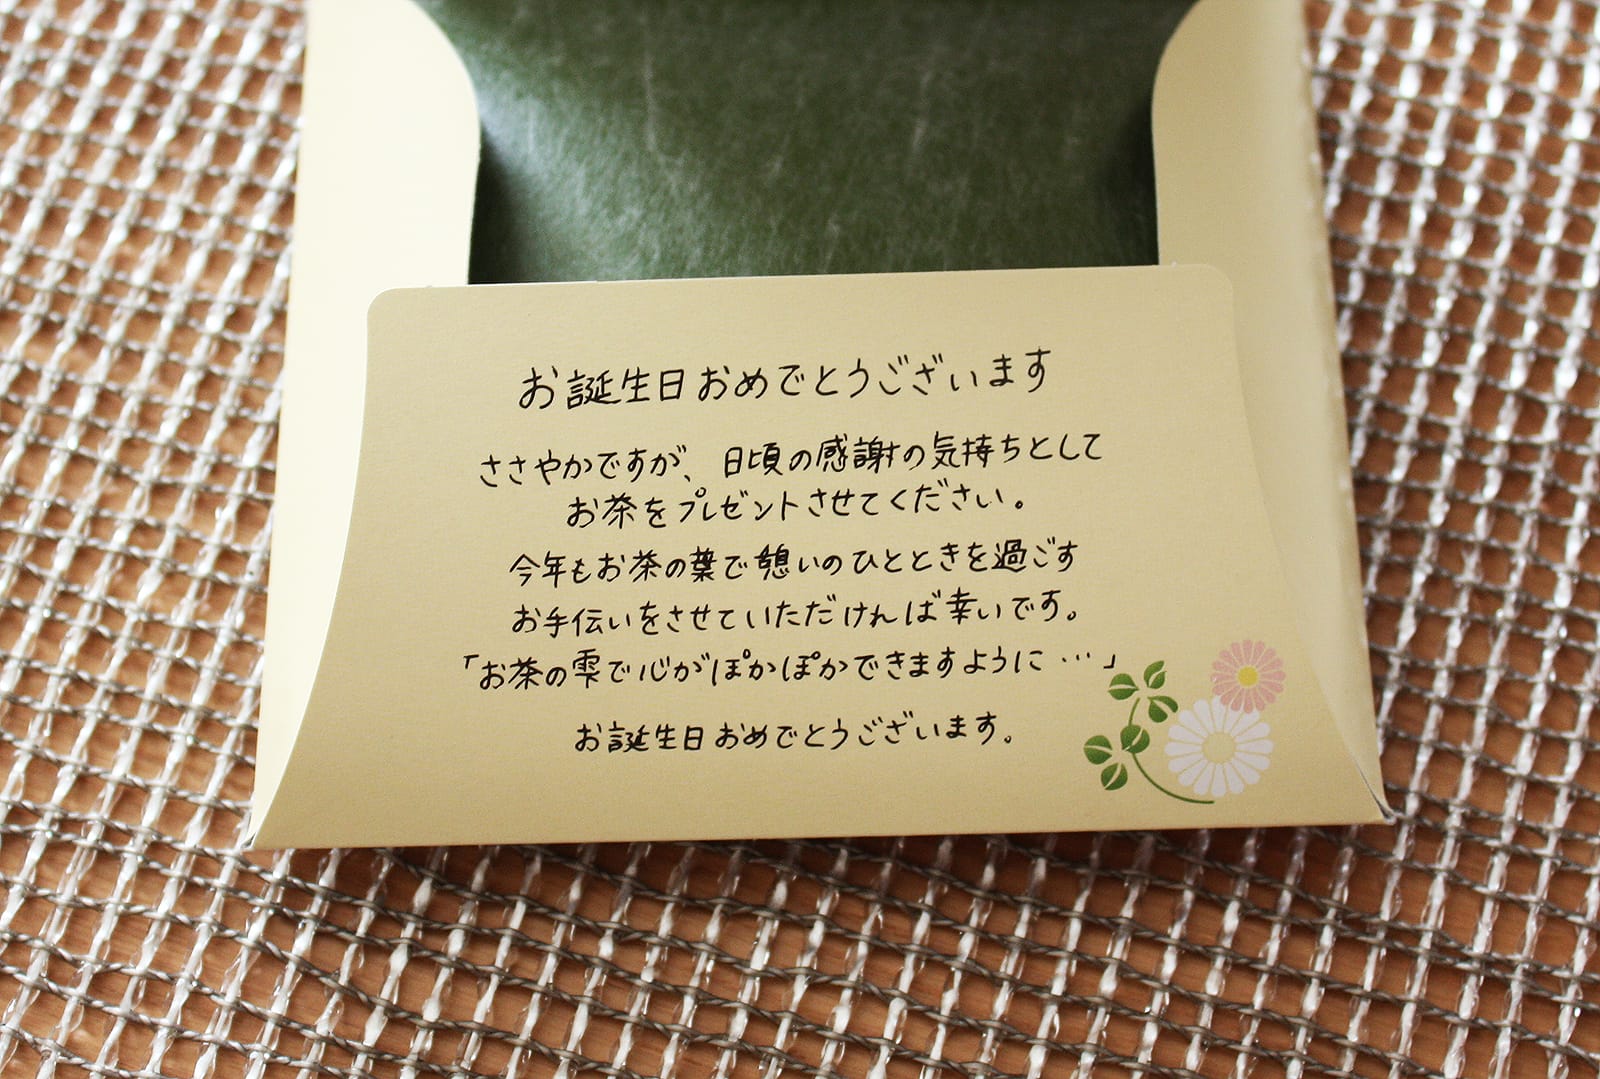 お誕生日おめでとうございます
ささやかですが、日頃の感謝の気持ちとして
お茶をプレゼントさせてください。
今年もお茶の葉で憩いのひとときを過ごす
お手伝いをさせていただければ幸いです。
「お茶の雫で心がぽかぽかできますように…」
お誕生日おめでとうございます。